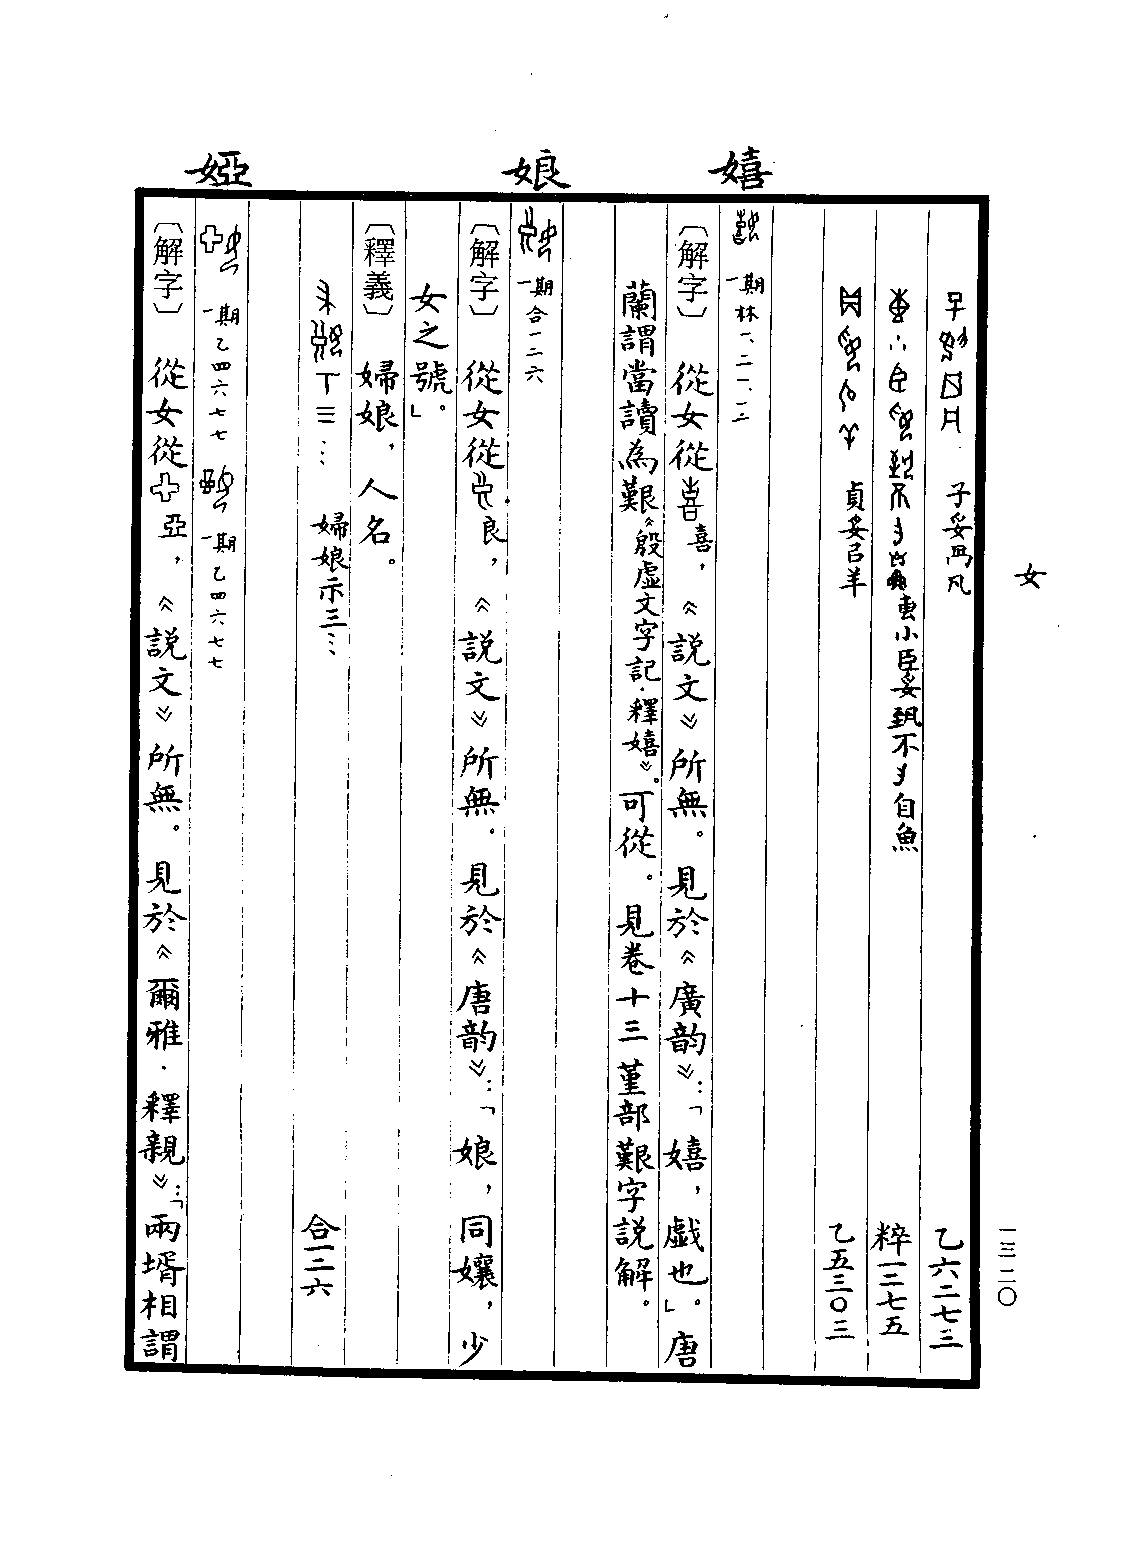 女
一三二〇
子妥冎凡 乙六二七三
叀小臣妥㚔不 自魚 粹一二七五
貞妥以羊 乙五三〇三
嬉
一期林一、二一、一二
〔解字〕 從女從喜，《說文》所無。見於《廣韵》：「嬉，戲也」。唐
蘭謂當讀為艱《殷虛文字記·釋嬉》。可從。見卷十三堇部艱字說解。
娘
一期合一二六
〔解字〕 從女從良，《說文》所無。見於《唐韵》：「娘，同孃，少
女之號。」
〔釋義〕 婦娘，人名。
婦娘示三… 合一二六
婭
一期乙四六七七 一期乙四六七七
〔解字〕 從女從亞，《說文》所無。見於《爾雅·釋親》：「兩壻相謂